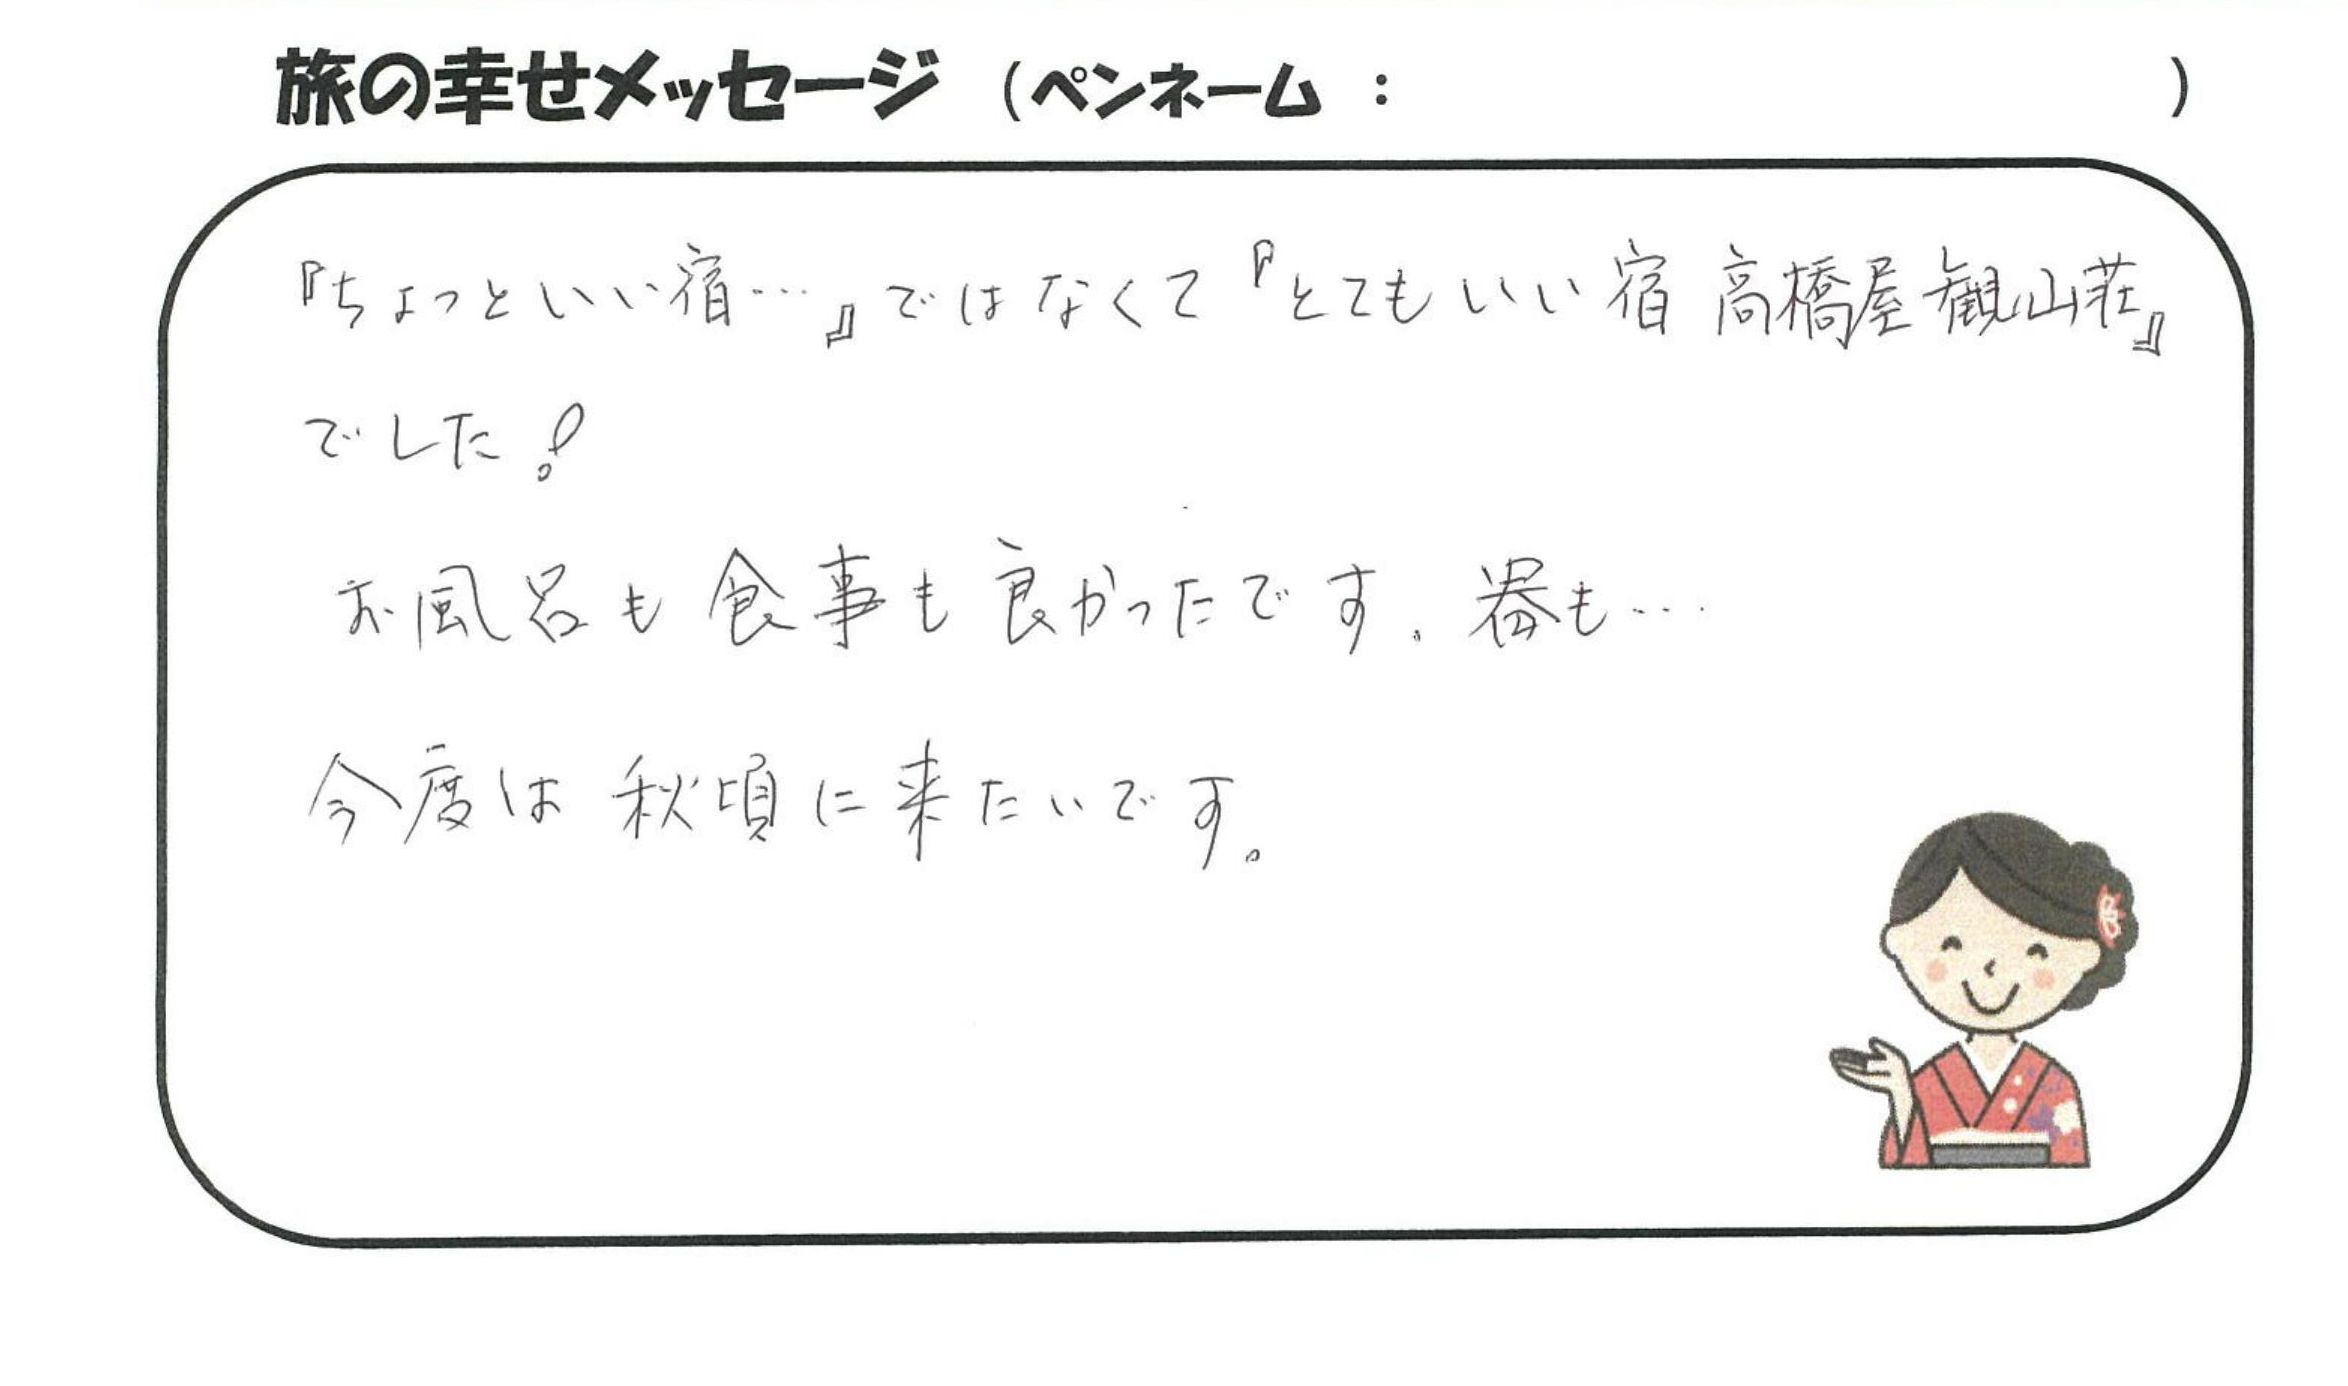 旅の幸せメッセージ (ペンネーム : )
『ちょっといい宿…』ではなくて『とてもいい宿 高橋屋観山荘』
でした!
お風呂も食事も良かったです。器も…
今度は秋頃に来たいです。